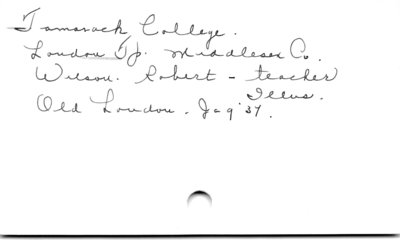 Tamarack College.
London Tp. Middlesex Co.
Wilson. Robert - teacher
Illus.
Old London. J-9 '37.